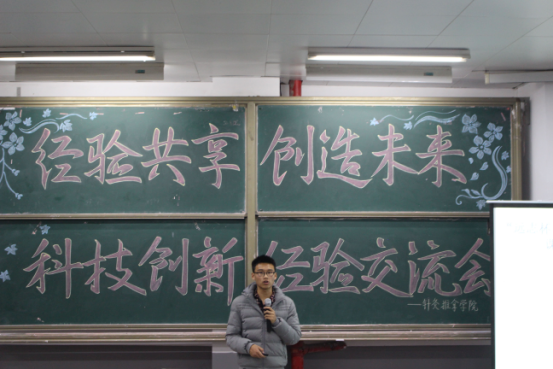 经验共享 创造未来
科技创新 经验交流会
——针灸推拿学院